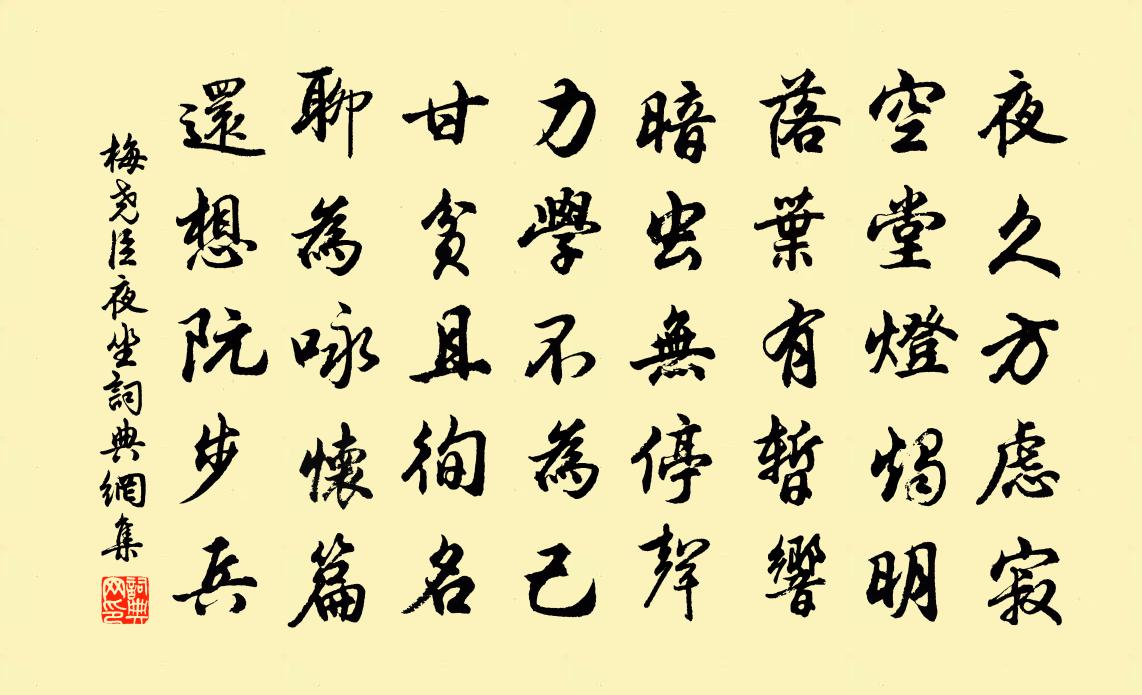 夜久方慮寂
空堂燈燭明
落葉有暫響
暗虫無停聲
力學不為己
甘貧且徇名
聊為咏懷篇
還想阮步兵
梅尧臣夜坐詞典網集
詞典网印